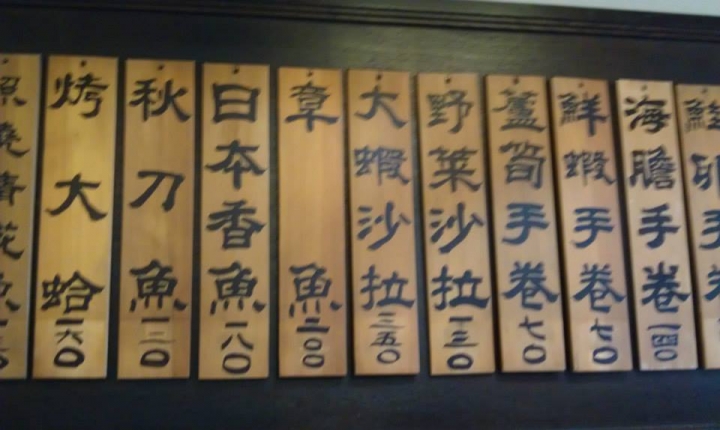 海膽手卷一四〇
鮮蝦手卷七〇
蘆筍手卷七〇
野菜沙拉一三〇
大蝦沙拉三五〇
章魚二〇〇
日本香魚一八〇
秋刀魚一二〇
烤大蛤一六〇
照燒青花魚